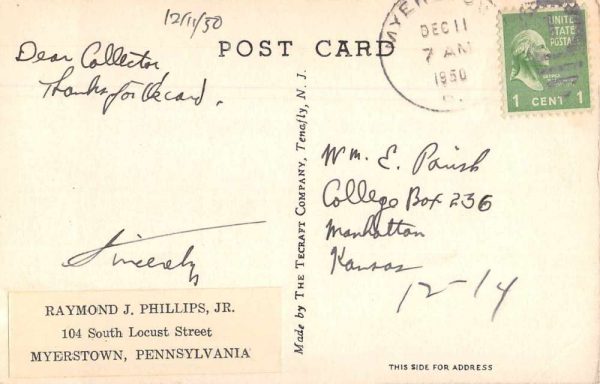 12/11/50
POST CARD
Dear Collector
Thanks for the card.
Sincerely
RAYMOND J. PHILLIPS, JR.
104 South Locust Street
MYERSTOWN, PENNSYLVANIA
Made by THE TECRAFT COMPANY, Tenafly, N. J.
DEC 11
7 AM
1950
UNITED
STATES
POSTAGE
1 CENT 1
Wm. E. Parish
College Box 236
Manhattan
Kansas
12-14
THIS SIDE FOR ADDRESS